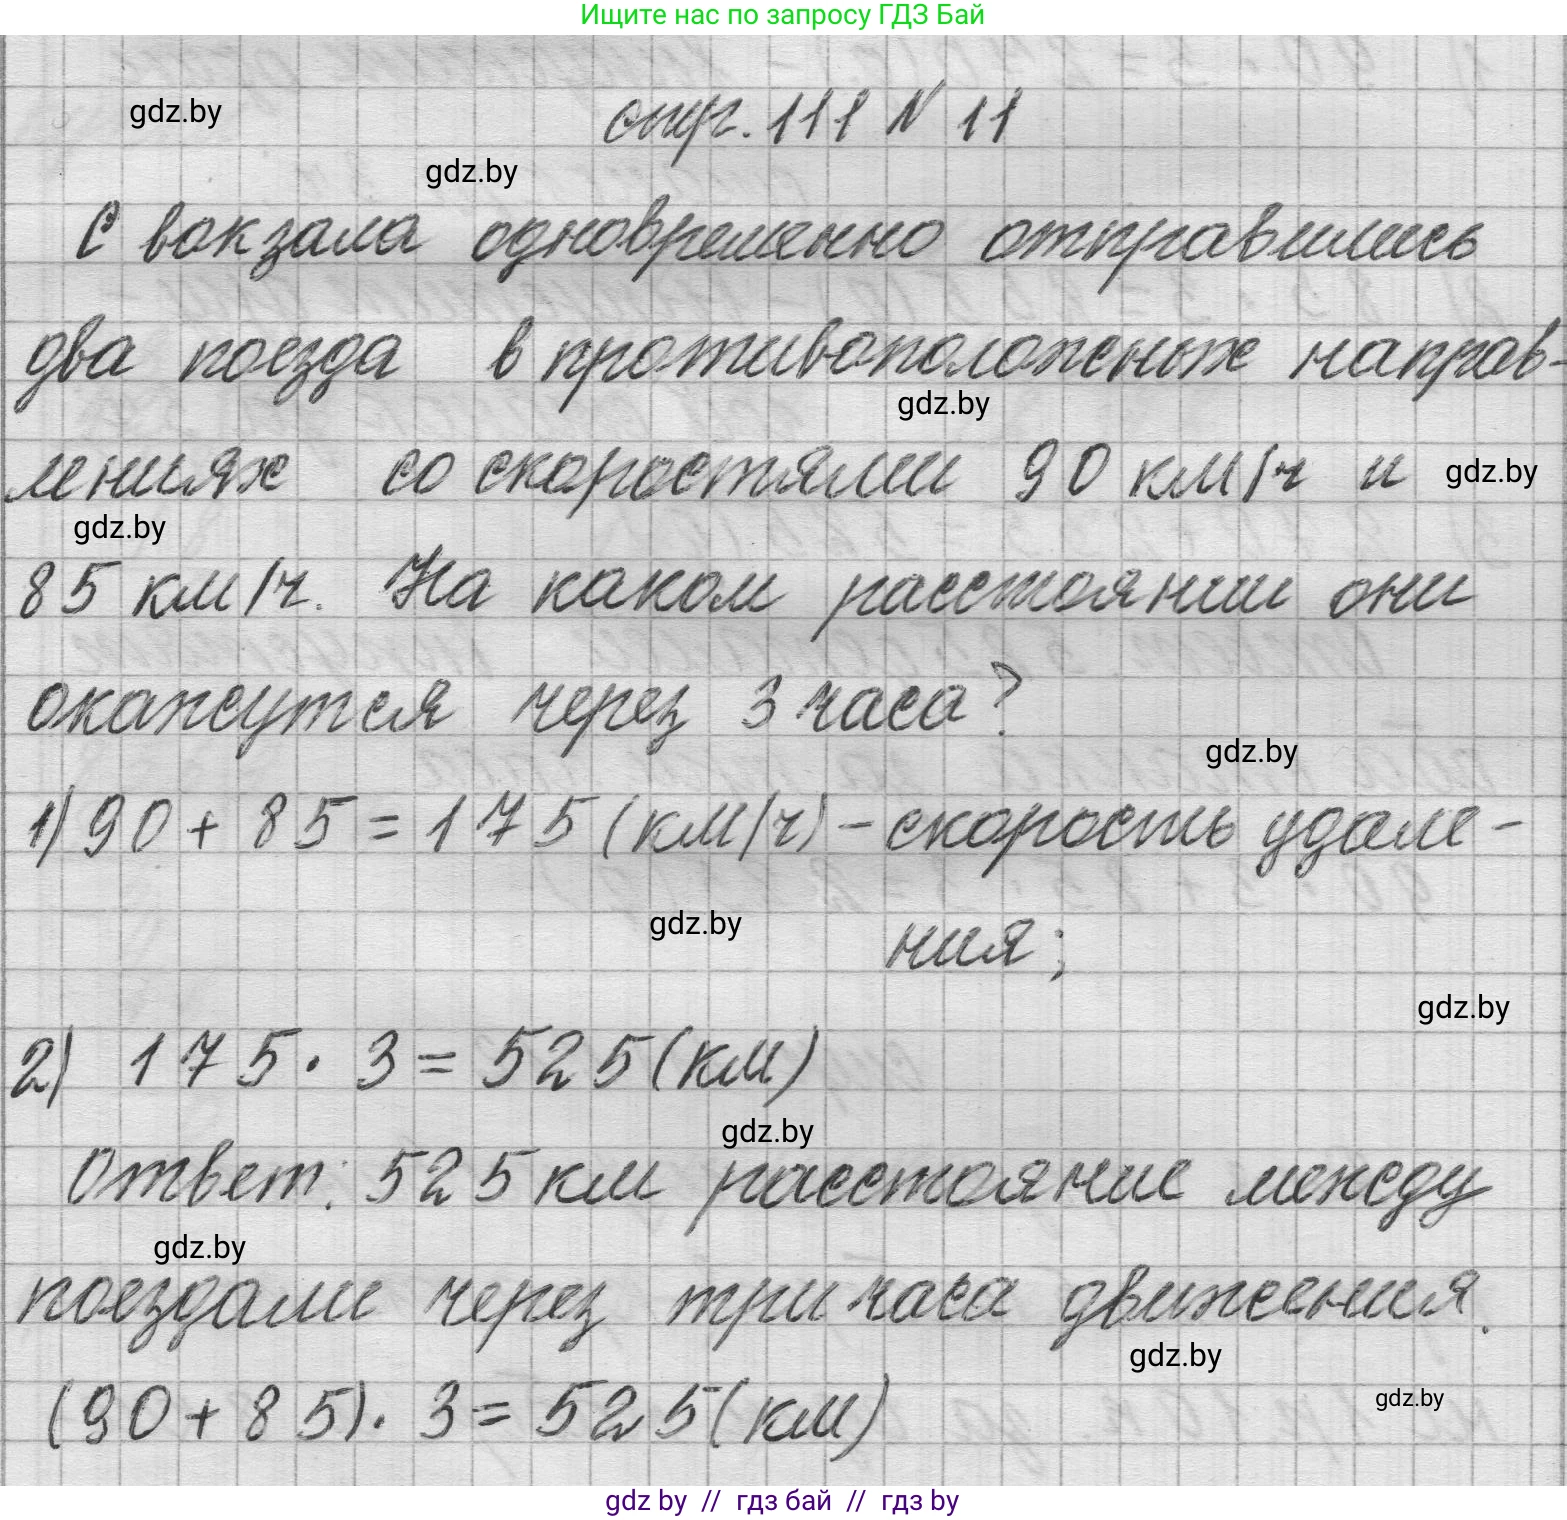 Ищите нас по запросу ГДЗ Бай
gdz.by
стр. 111 N 11
gdz.by
С вокзала одновременно отправились
два поезда в противоположных направ-
gdz.by
лениях со скоростями 90 км/ч и
gdz.by
gdz.by
85 км/ч. На каком расстоянии они
окажутся через 3 часа?
gdz.by
1) 90 + 85 = 175 (км/ч) - скорость удале-
gdz.by
ния;
gdz.by
2) 175 · 3 = 525 (км)
gdz.by
Ответ: 525 км расстояние между
gdz.by
поездами через три часа движения.
gdz.by
gdz.by
(90 + 85) · 3 = 525 (км)
gdz by // гдз бай // гдз by